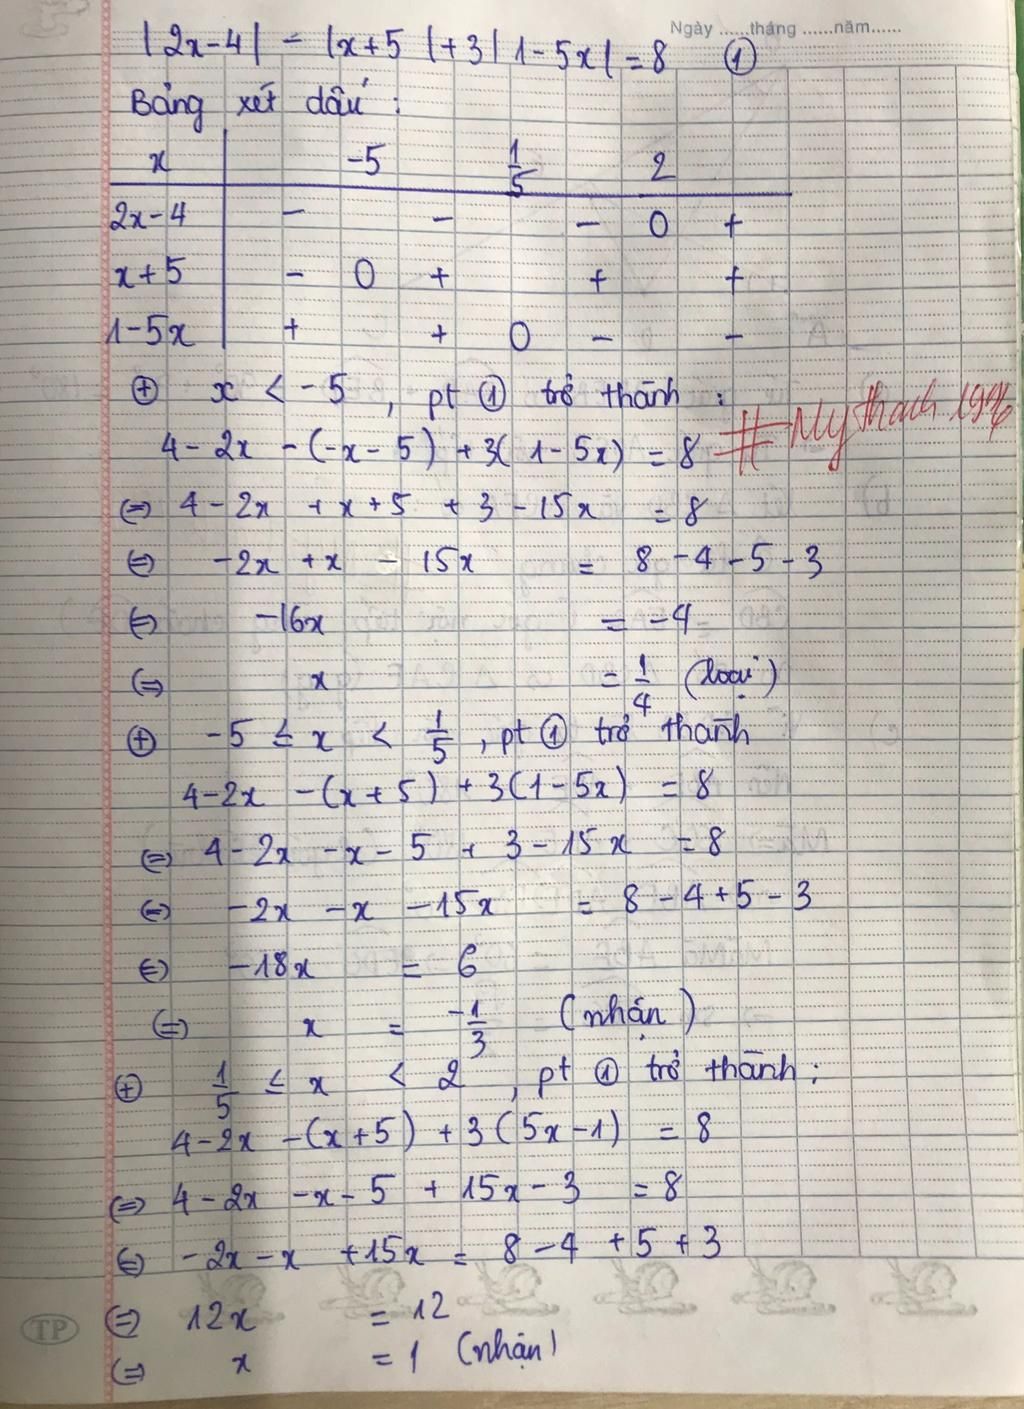 Ngày ......tháng ......năm......
|2x-4| - |x+5|+3|1-5x|=8 ①
Bảng xét dấu :
x -5 1/5 2
2x-4 - - - 0 +
x+5 - 0 + + +
1-5x + + 0 - -
⊕ x < -5 , pt ① trở thành :
4-2x -(-x-5) +3(1-5x) = 8 # Mythach1996
⇔ 4-2x +x+5 +3-15x = 8
⇔ -2x +x -15x = 8-4-5-3
⇔ -16x = -4
⇔ x = 1/4 (loại)
⊕ -5 ≤ x < 1/5 , pt ① trở thành
4-2x -(x+5) +3(1-5x) = 8
⇔ 4-2x-x-5 + 3-15x = 8
⇔ -2x -x -15x = 8-4+5-3
⇔ -18x = 6
⇔ x = -1/3 (nhận)
⊕ 1/5 ≤ x < 2 , pt ① trở thành :
4-2x -(x+5) +3(5x-1) = 8
⇔ 4-2x -x-5 + 15x-3 = 8
⇔ -2x-x +15x = 8-4 +5+3
⇔ 12x = 12
TP
⇔ x = 1 (nhận)